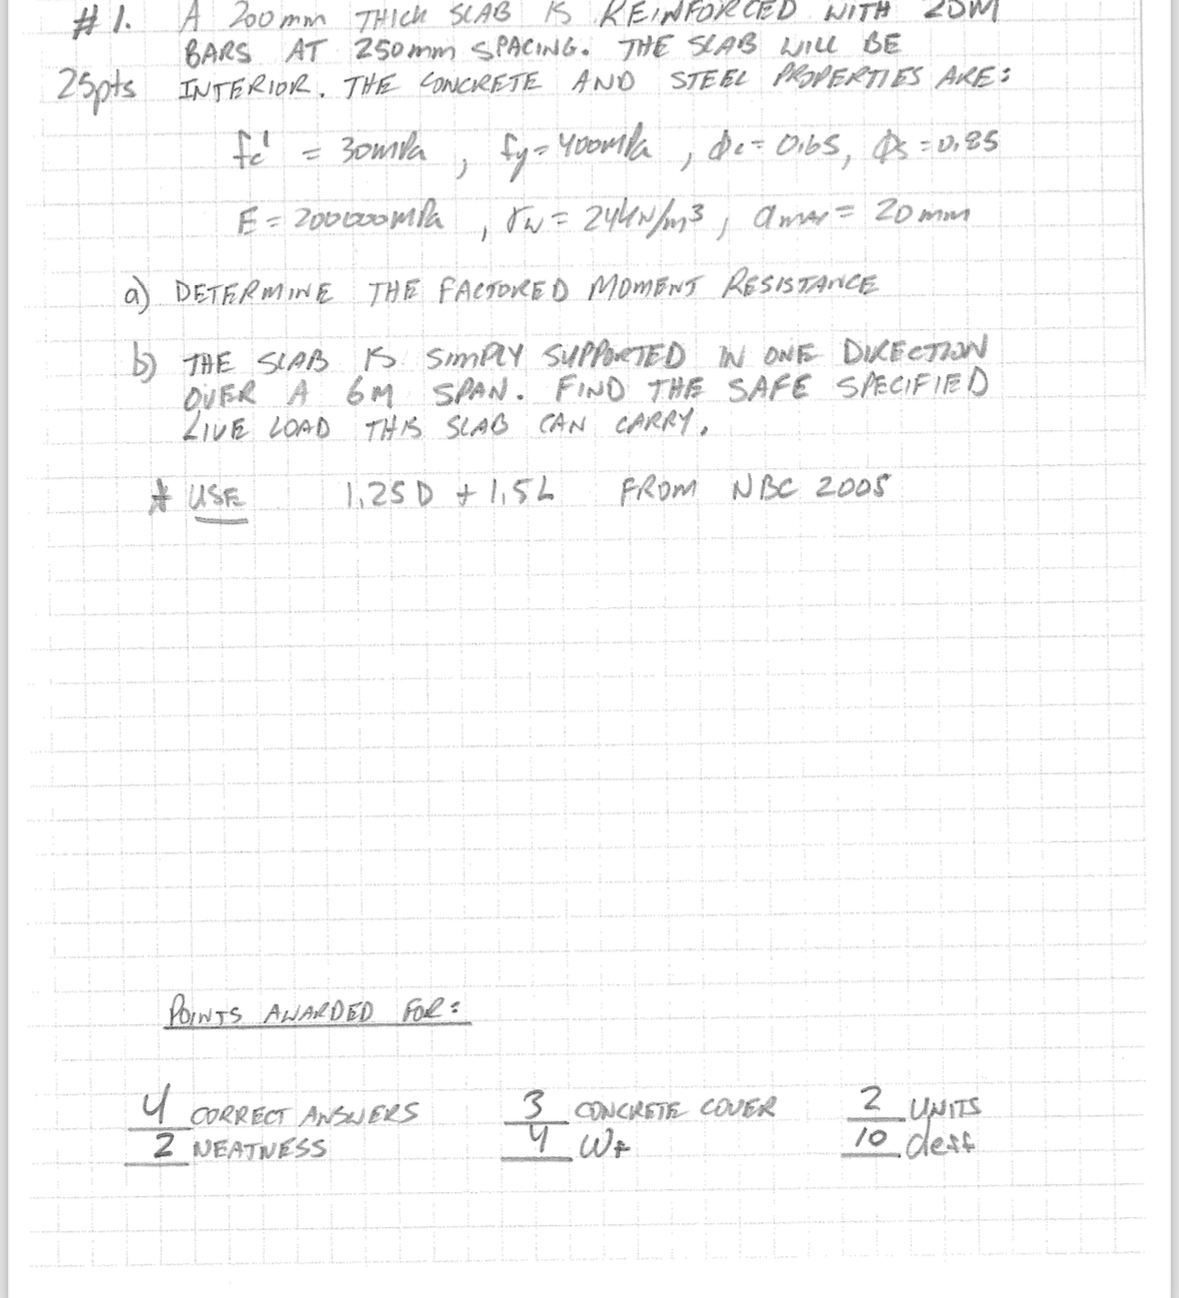 #1. A 200mm THICK SLAB IS REINFORCED WITH 20M
BARS AT 250mm SPACING. THE SLAB WILL BE
25pts INTERIOR. THE CONCRETE AND STEEL PROPERTIES ARE:
fc' = 30mPa , fy = 400mPa , ϕc = 0.65, ϕs = 0.85
E = 200000mPa , γw = 24kN/m³ , amax = 20mm
a) DETERMINE THE FACTORED MOMENT RESISTANCE
b) THE SLAB IS SIMPLY SUPPORTED IN ONE DIRECTION
OVER A 6M SPAN. FIND THE SAFE SPECIFIED
LIVE LOAD THIS SLAB CAN CARRY.
* USE 1.25D + 1.5L FROM NBC 2005
POINTS AWARDED FOR:
4 CORRECT ANSWERS 3 CONCRETE COVER 2 UNITS
2 NEATNESS 4 Wf 10 deff